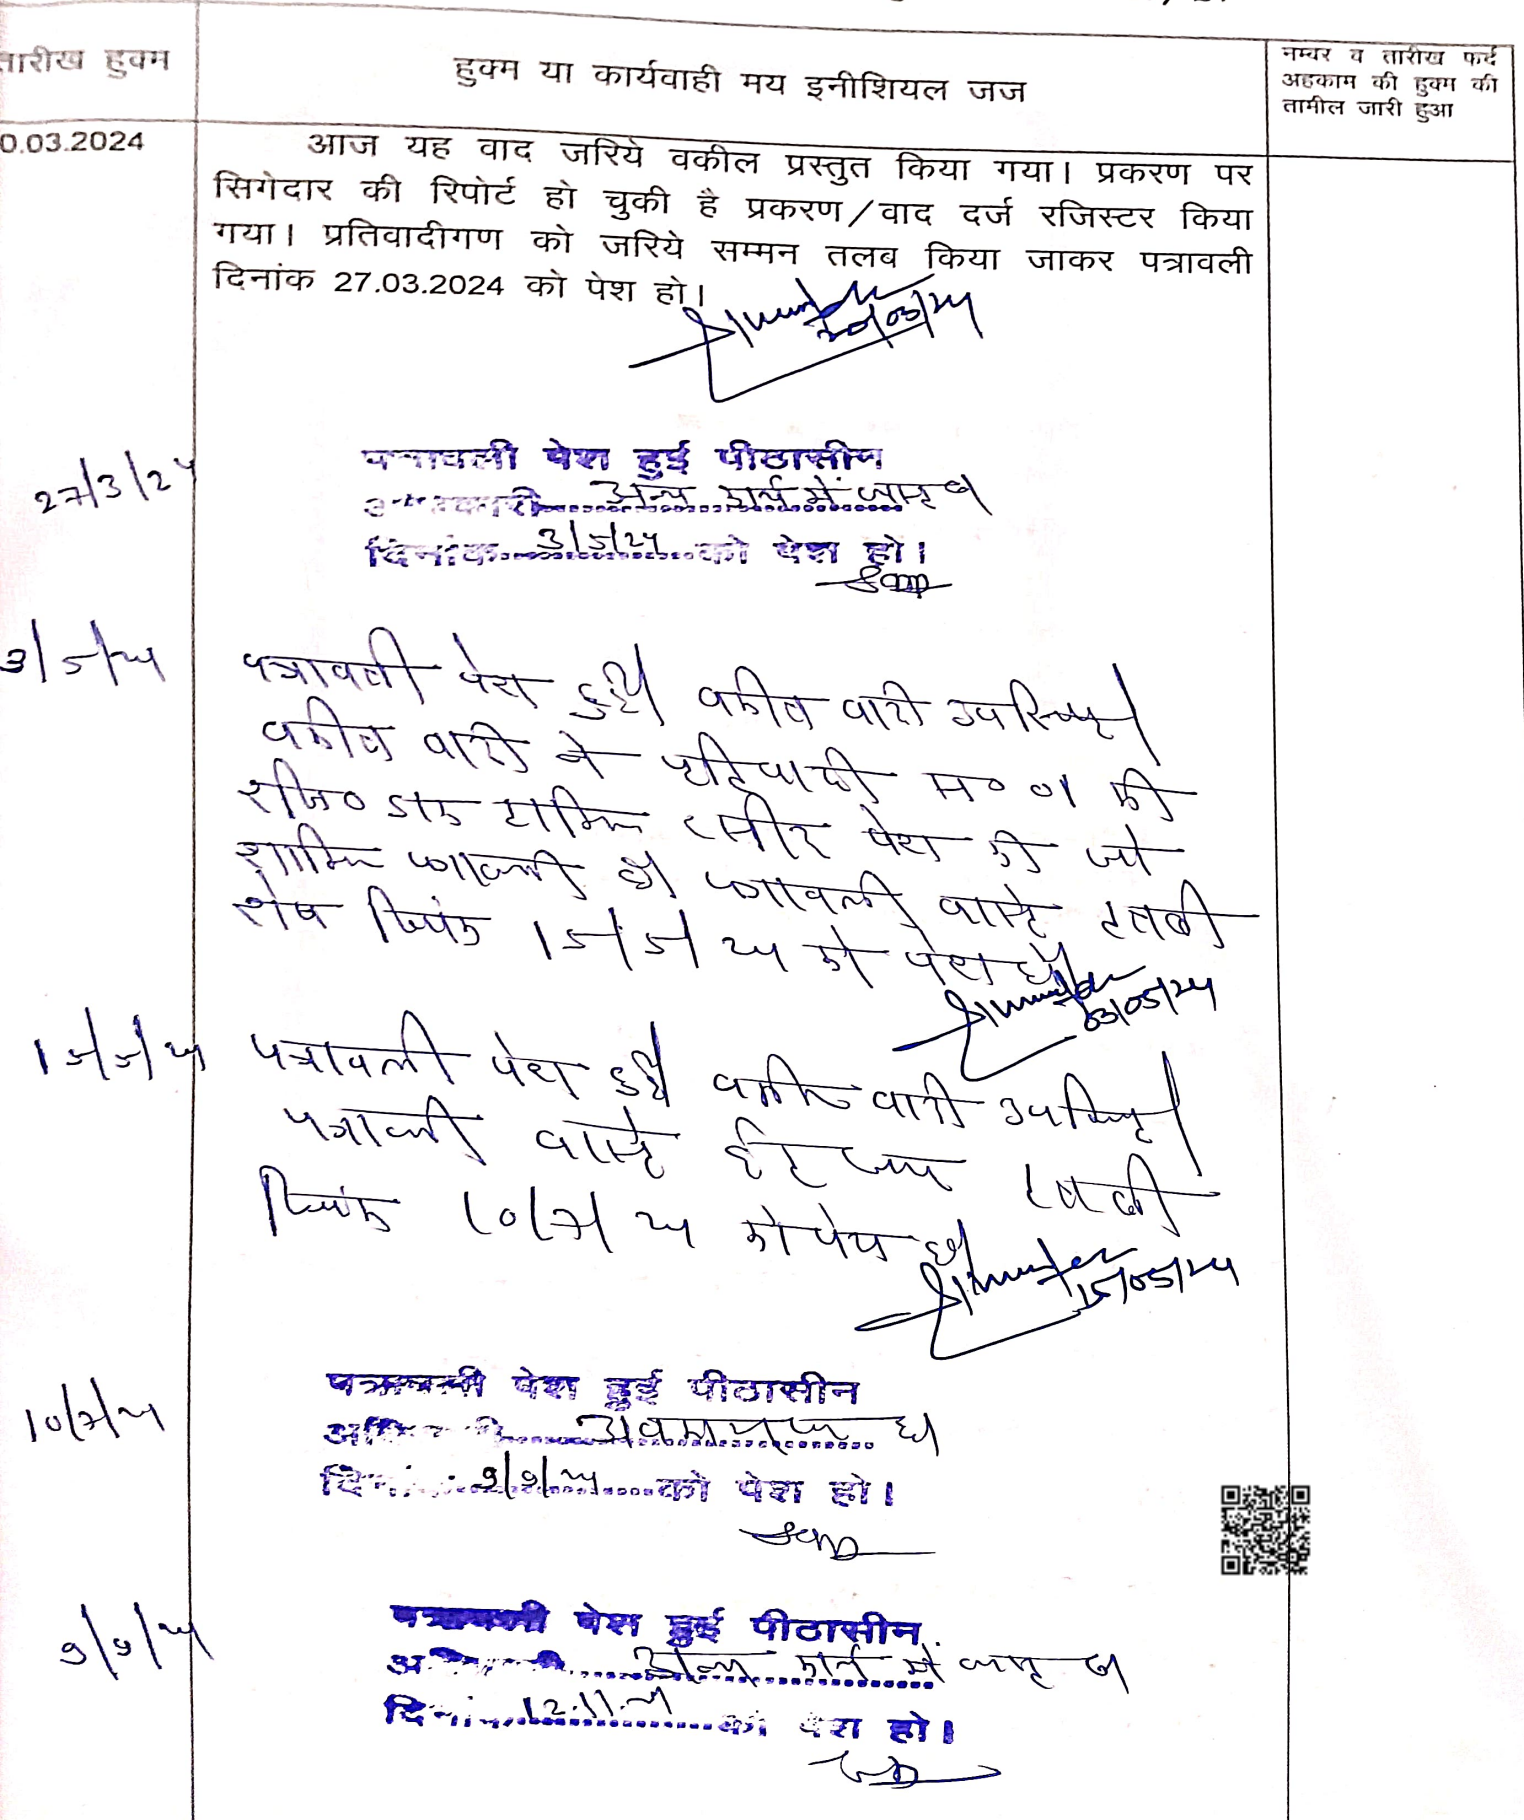 तारीख हुक्म
हुक्म या कार्यवाही मय इनीशियल जज
नम्बर व तारीख फर्द
अहकाम की हुक्म की
तामील जारी हुआ
0.03.2024
आज यह वाद जरिये वकील प्रस्तुत किया गया। प्रकरण पर
सिगेदार की रिपोर्ट हो चुकी है प्रकरण/वाद दर्ज रजिस्टर किया
गया। प्रतिवादीगण को जरिये सम्मन तलब किया जाकर पत्रावली
दिनांक 27.03.2024 को पेश हो।
20/03/24
27/3/24
पत्रावली पेश हुई पीठासीन
अन्य कार्य में
दिनांक 3/5/24 को पेश हो।
3/5/24
पत्रावली पेश हुई। वकील वादी उपस्थित।
वकील वादी ने प्रतिवादी स० 01 की
रजि० डाक रसीद पेश की जो
शामिल पत्रावली हो। पत्रावली वास्ते तलबी
शेष दिनांक 15/5/24 को पेश हो।
03/05/24
15/5/24
पत्रावली पेश हुई। वकील वादी उपस्थित।
पत्रावली वास्ते तलबी
दिनांक 10/7/24 को पेश हो।
15/05/24
10/7/24
पत्रावली पेश हुई पीठासीन
अधिकारी अवकाश पर
दिनांक 9/9/24 को पेश हो।
9/9/24
पत्रावली पेश हुई पीठासीन
अधिकारी अन्य कार्य में
दिनांक 12.11.24 को पेश हो।